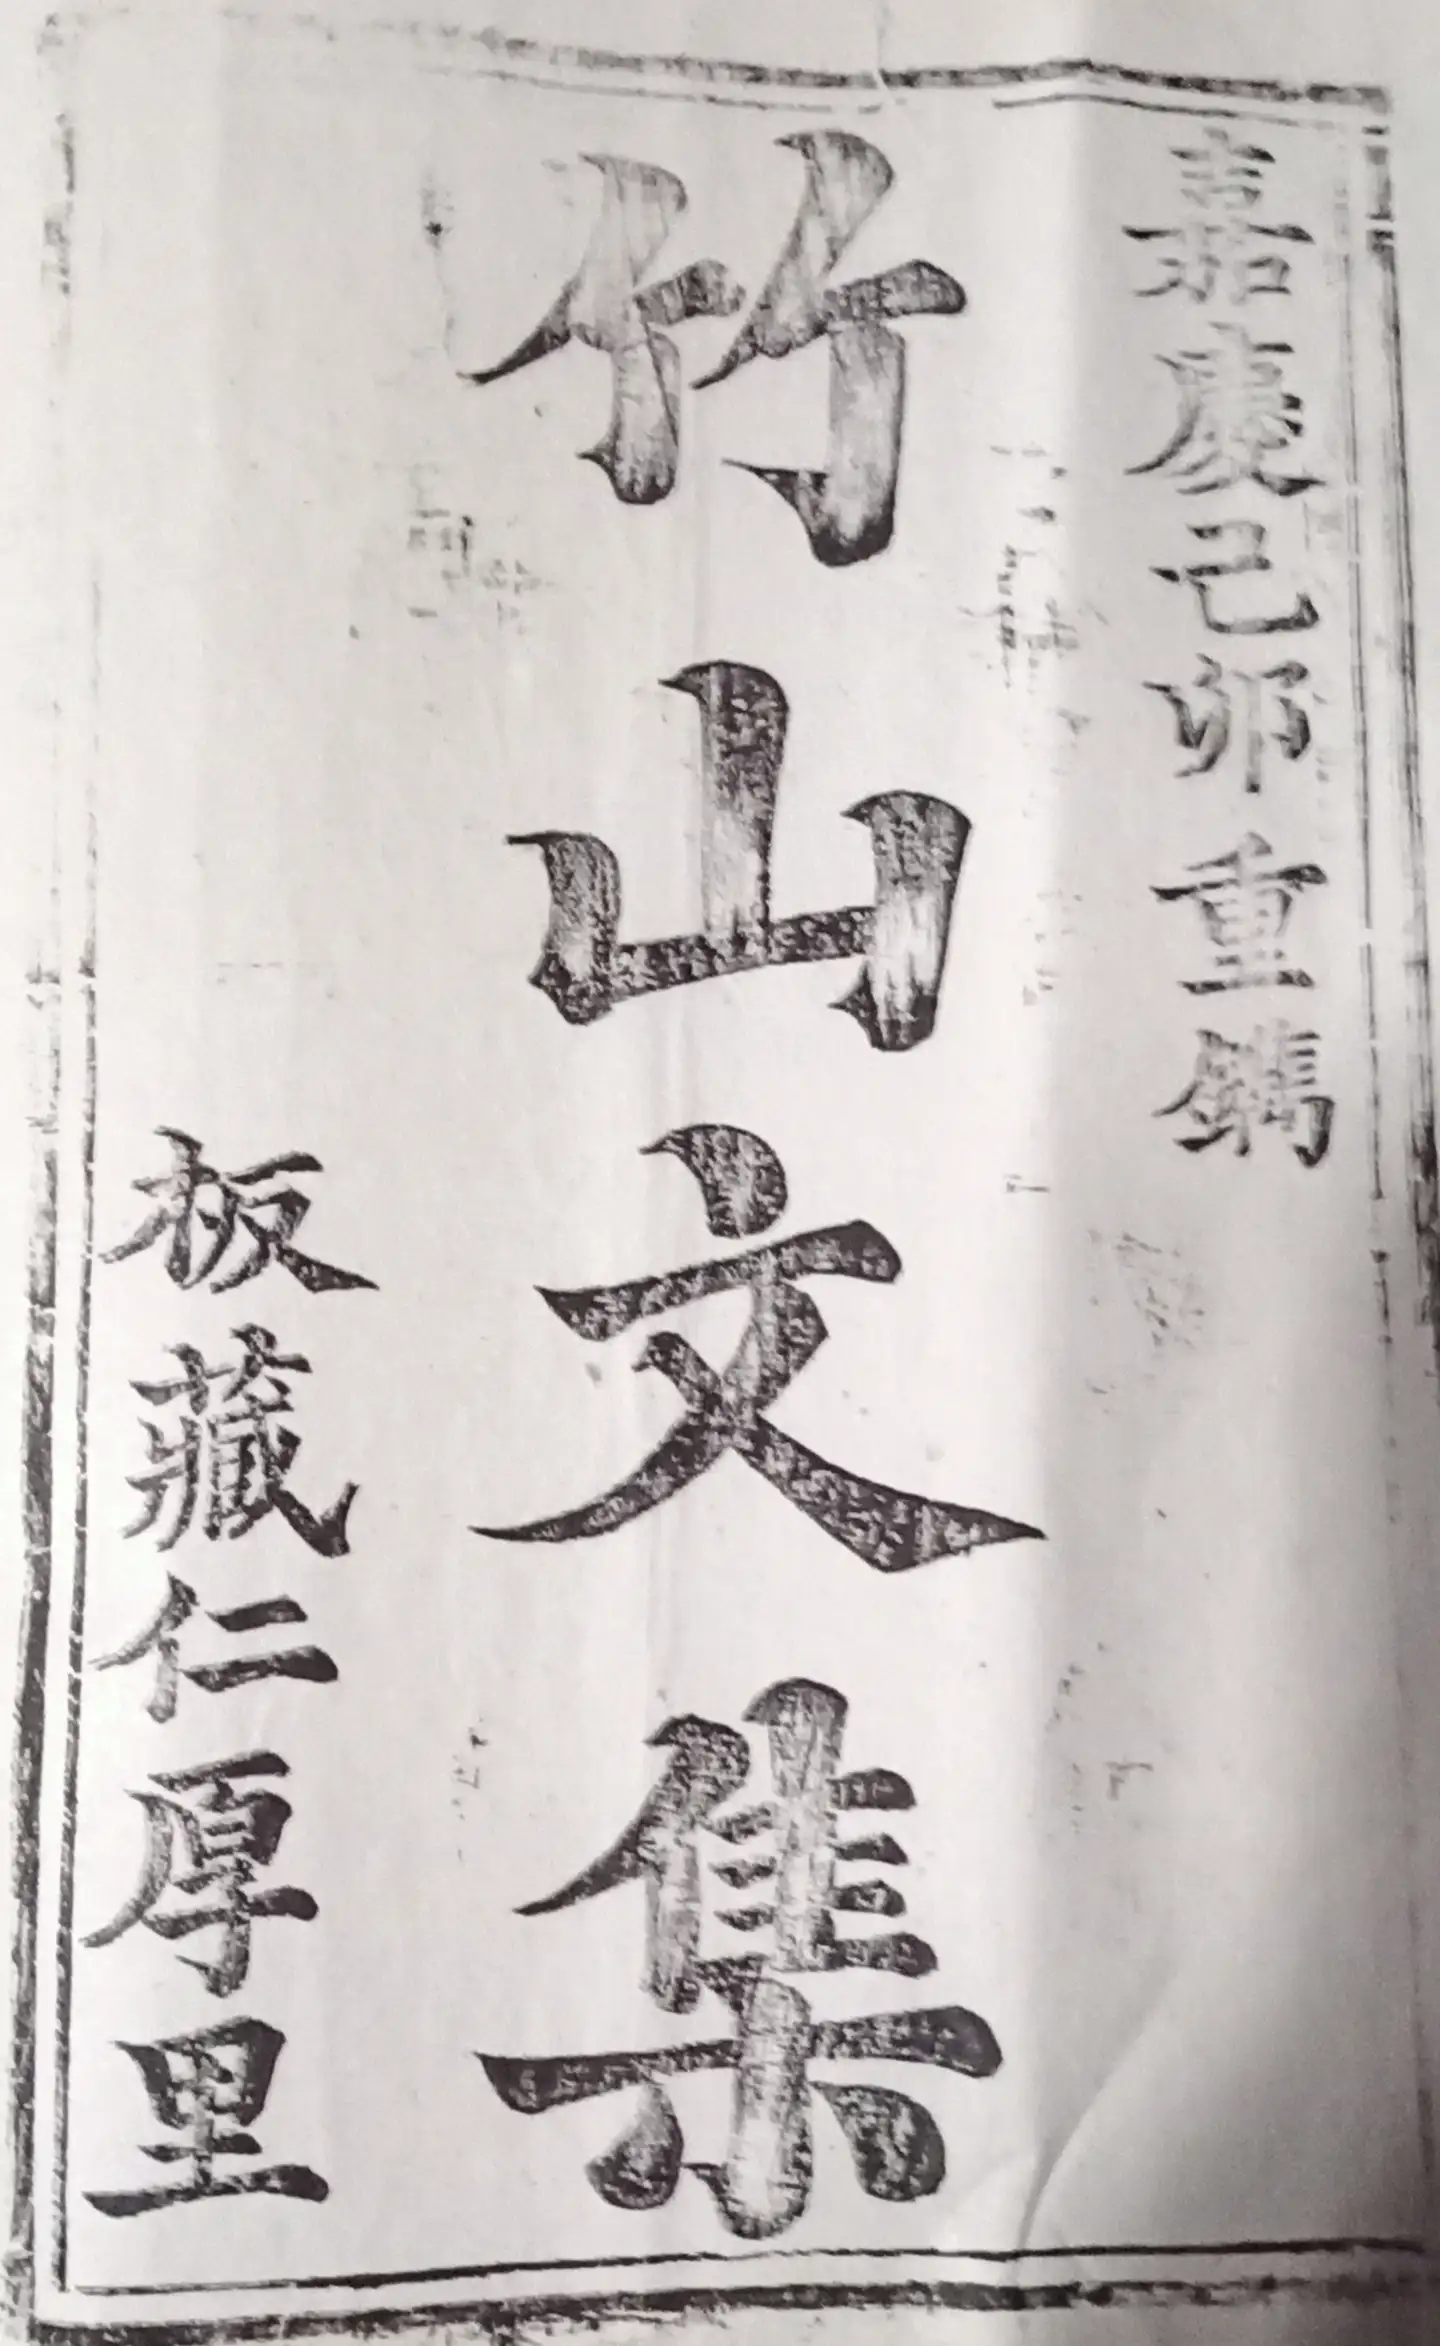 嘉慶己卯重鐫
竹山文集
板藏仁厚里